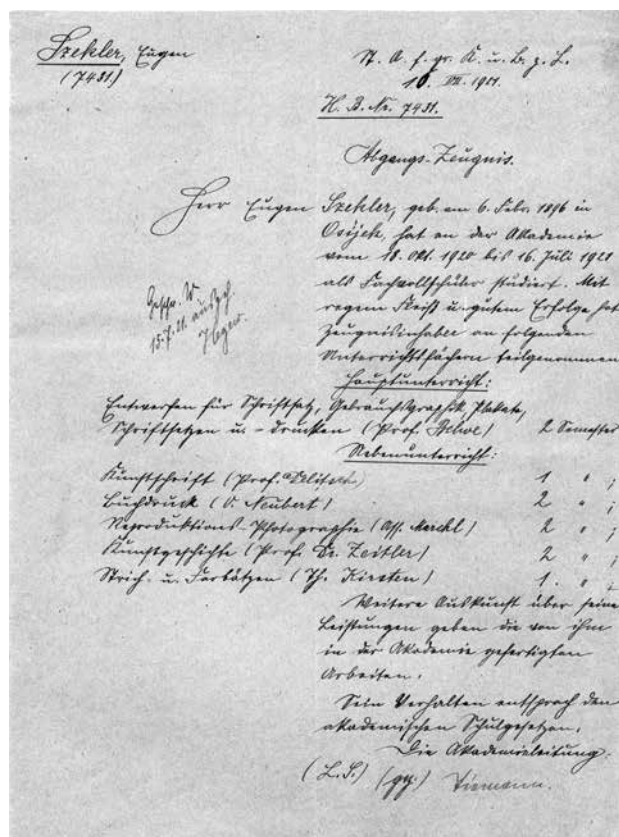 Szekler, Eugen
(7431)
St. A. f. gr. K. u. B. z. L.
16. VII. 1921.
H. B. Nr. 7431.
Abgangs-Zeugnis.
Herr Eugen Szekler, geb. am 6. Febr. 1896 in
Osijek, hat an der Akademie
vom 18. Okt. 1920 bis 16. Juli 1921
als Fachvollschüler studiert. Mit
regem Fleiß u. gutem Erfolge hat
Zeugnisinhaber an folgenden
Unterrichtsfächern teilgenommen
Geschr. W.
15.7.21.
Hauptunterricht:
Entwerfen für Schriftsatz, Gebrauchsgraphik, Plakate,
Schriftsetzen u. -drucken (Prof. Belwe) 2 Semester
Nebenunterricht:
Kunstschrift (Prof. Delitsch) 1 " ;
Buchdruck (O. Neubert) 2 " ;
Reproduktions-Photographie (Ass. Merckl) 2 " ;
Kunstgeschichte (Prof. Dr. Zeitler) 2 " ;
Strich- u. Farbätzen (Th. Kirsten) 1. " ;
Weitere Auskunft über seine
Leistungen geben die von ihm
in der Akademie gefertigten
Arbeiten.
Sein Verhalten entsprach den
akademischen Schulgesetzen.
Die Akademieleitung:
(L.S.) (gez.) Tiemann.